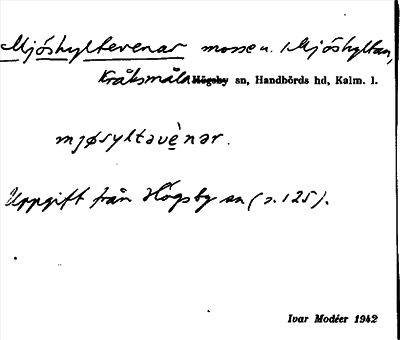 Mjöshyltevenar mosse u. Mjöshyltan,
Kråksmåla Högsby sn, Handbörds hd, Kalm. l.
mjøsyltəvènər.
Uppgift från Högsby sn (s. 125).
Ivar Modéer 1942